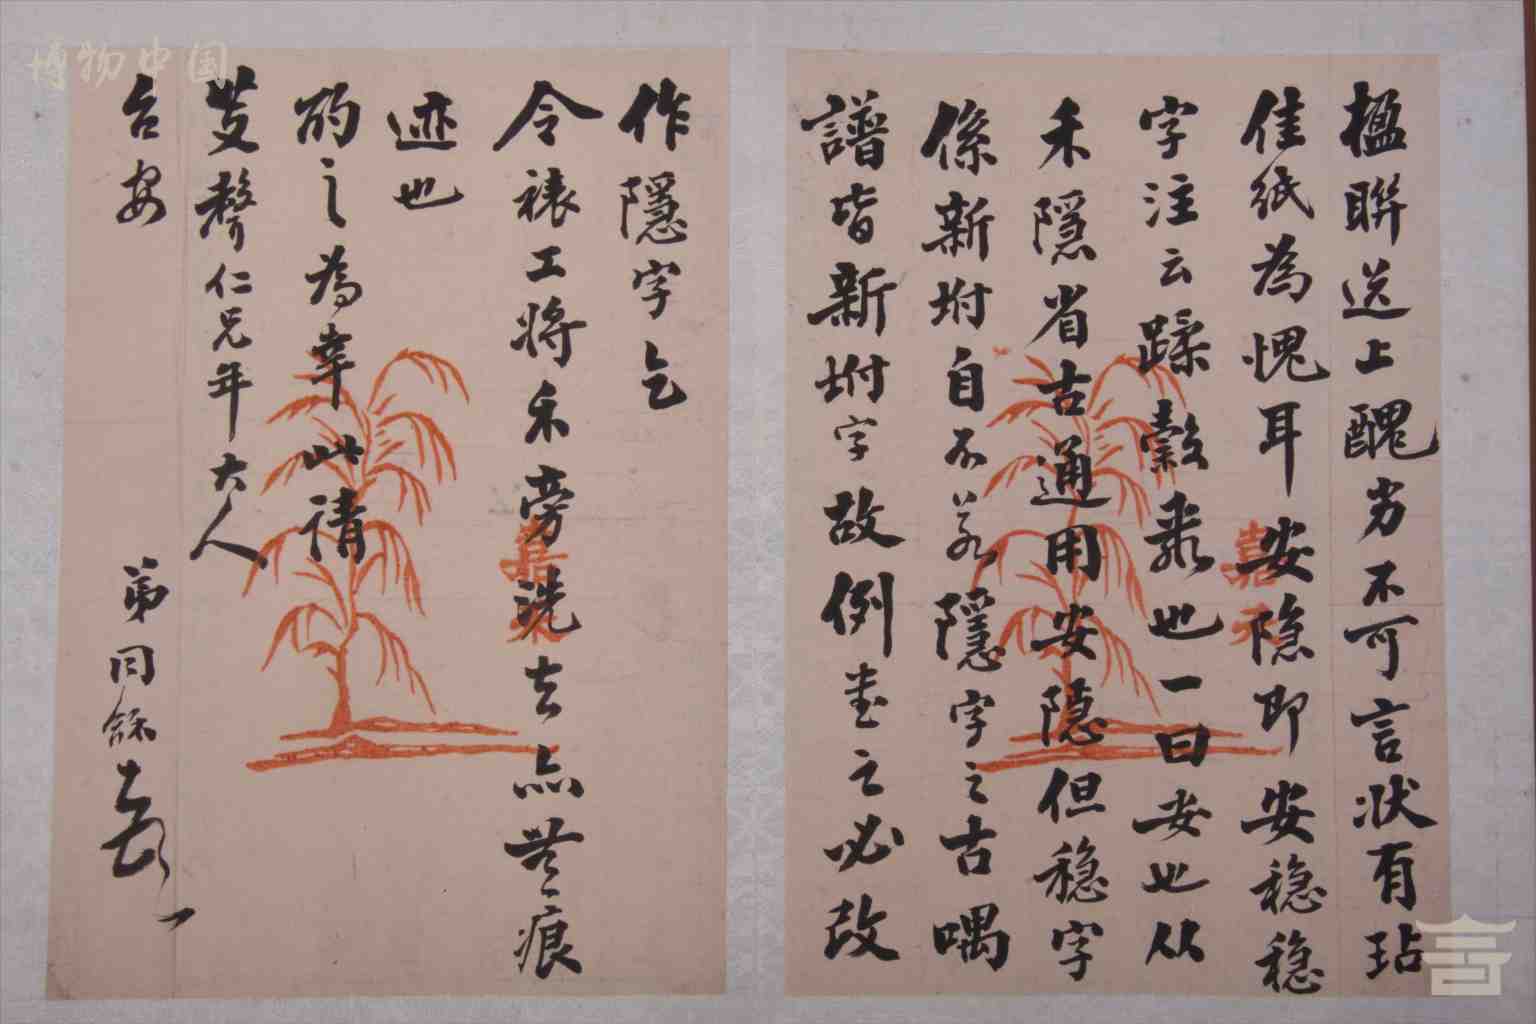 楹聯送上醜劣不可言狀有玷
佳紙為愧耳安隐即安穏穏
字注云蹂穀聚也一曰安也从
禾隱省古通用安隱但穏字
係新坿自不若隱字之古喁
譜皆新坿字故例書之必改
作隱字乞
令裱工將禾旁洗去点無痕
迹也
酌之為幸此請
芰聲仁兄年大人
台安
弟同龢
嘉禾
嘉禾
博物中国